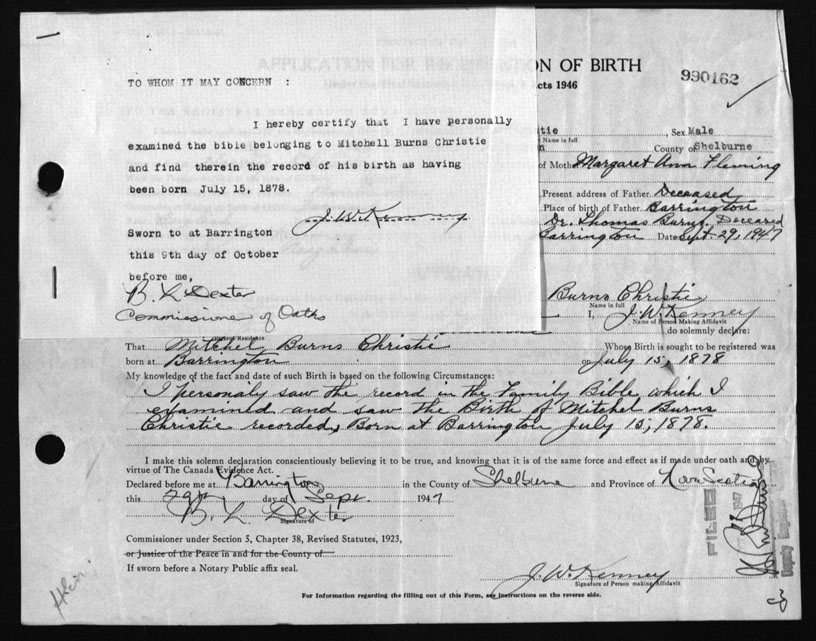 TO WHOM IT MAY CONCERN :
I hereby certify that I have personally
examined the bible belonging to Mitchell Burns Christie
and find therein the record of his birth as having
been born July 15, 1878.
J.W. Kenney
Sworn to at Barrington
this 9th day of October
before me,
B. L. Dexter
Commissione of Oaths
ON OF BIRTH
Acts 1946
990162
tie, Sex Male
Name in full
n County of Shelburne
of Mother Margaret Ann Fleming
Present address of Father Deceased
Place of birth of Father Barrington
Dr. Thomas Burns, Deceased
Barrington Date Sept. 29, 1947
Burns Christie
Name in full
I, J.W. Kenney
Name of Person Making Affidavit
do solemnly declare:
That Mitchel Burns Christie Whose Birth is sought to be registered was
born at Barrington on July 15, 1878
My knowledge of the fact and date of such Birth is based on the following Circumstances:
I personaly saw the record in the Family Bible, which I
examined and saw the Birth of Mitchel Burns
Christie recorded, Born at Barrington July 15, 1878.
I make this solemn declaration conscientiously believing it to be true, and knowing that it is of the same force and effect as if made under oath and by
virtue of The Canada Evidence Act.
Declared before me at Barrington in the County of Shelburne and Province of Nova Scotia
this 29th day of Sept 1947
B. L. Dexter
Signature of
Commissioner under Section 5, Chapter 38, Revised Statutes, 1923,
or Justice of the Peace in and for the County of
If sworn before a Notary Public affix seal.
J.W. Kenney
Signature of Person making Affidavit
For Information regarding the filling out of this Form, see Instructions on the reverse side.
FILED
1947